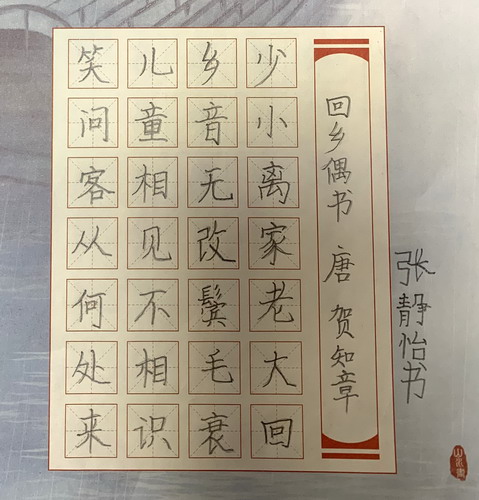 回乡偶书 唐 贺知章
少小离家老大回
乡音无改鬓毛衰
儿童相见不相识
笑问客从何处来
张静怡书